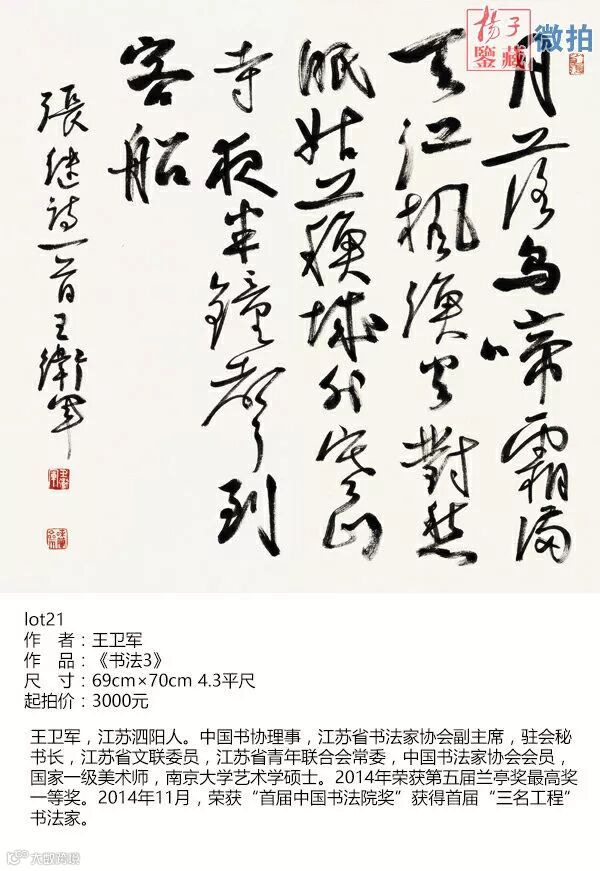 楊子
鑒藏
微拍
月落烏啼霜満
天江楓漁火對愁
眠姑蘇城外寒山
寺夜半鐘聲到
客船
張继詩一首王衛軍
lot21
作 者：王卫军
作 品：《书法3》
尺 寸：69cm×70cm 4.3平尺
起拍价：3000元
王卫军，江苏泗阳人。中国书协理事，江苏省书法家协会副主席，驻会秘
书长，江苏省文联委员，江苏省青年联合会常委，中国书法家协会会员，
国家一级美术师，南京大学艺术学硕士。2014年荣获第五届兰亭奖最高奖
一等奖。2014年11月，荣获“首届中国书法院奖”获得首届“三名工程”
书法家。
大数跨境